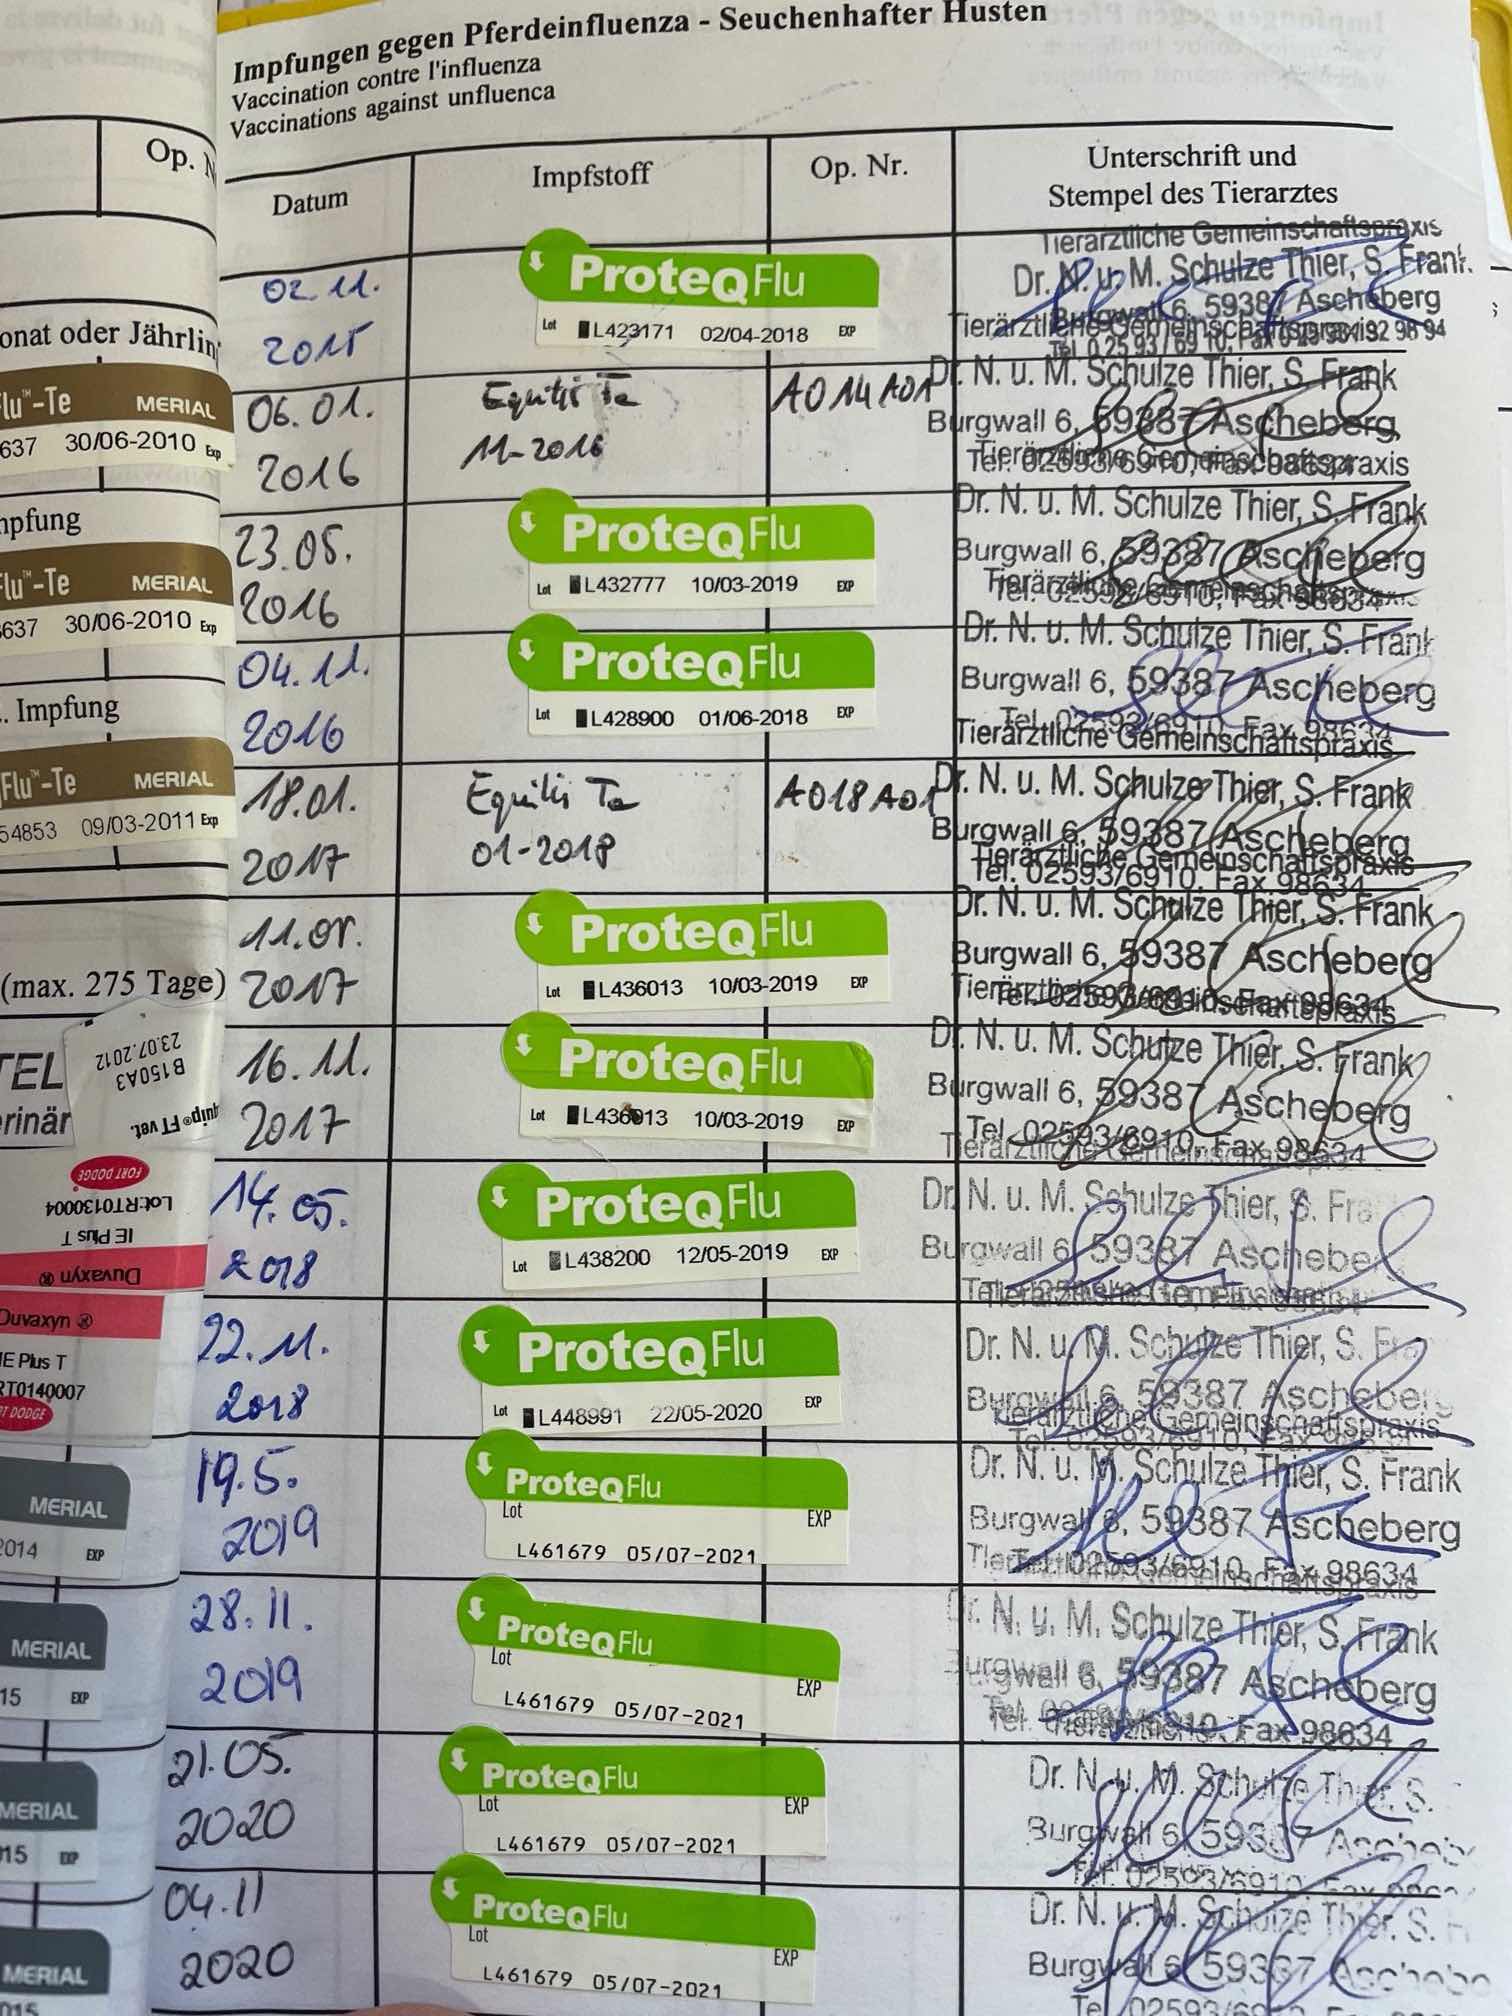 Impfungen gegen Pferdeinfluenza - Seuchenhafter Husten
Vaccination contre l'influenza
Vaccinations against unfluenca
Datum
Impfstoff
Op. Nr.
Unterschrift und
Stempel des Tierarztes
02.11.
2015
ProteqFlu
Lot L423171 02/04-2018 EXP
Tierärztliche Gemeinschaftspraxis
Dr. N. u. M. Schulze Thier, S. Frank
Burgwall 6, 59387 Ascheberg
06.01.
2016
Equilis Te
11-2016
A014A01
Tierärztliche Gemeinschaftspraxis
Dr. N. u. M. Schulze Thier, S. Frank
Burgwall 6, 59387 Ascheberg
Tel. 02593/6910, Fax 98634
23.05.
2016
ProteqFlu
Lot L432777 10/03-2019 EXP
Tierärztliche Gemeinschaftspraxis
Dr. N. u. M. Schulze Thier, S. Frank
Burgwall 6, 59387 Ascheberg
Tel. 02593/6910, Fax 98634
04.11.
2016
ProteqFlu
Lot L428900 01/06-2018 EXP
Tierärztliche Gemeinschaftspraxis
Dr. N. u. M. Schulze Thier, S. Frank
Burgwall 6, 59387 Ascheberg
Tel. 02593/6910, Fax 98634
18.01.
2017
Equilis Te
01-2018
A018A01
Tierärztliche Gemeinschaftspraxis
Dr. N. u. M. Schulze Thier, S. Frank
Burgwall 6, 59387 Ascheberg
Tel. 02593/6910, Fax 98634
2017
ProteqFlu
Lot L436013 10/03-2019 EXP
Tierärztliche Gemeinschaftspraxis
Dr. N. u. M. Schulze Thier, S. Frank
Burgwall 6, 59387 Ascheberg
Tel. 02593/6910, Fax 98634
16.11.
2017
ProteqFlu
Lot L436013 10/03-2019 EXP
Tierärztliche Gemeinschaftspraxis
Dr. N. u. M. Schulze Thier, S. Frank
Burgwall 6, 59387 Ascheberg
Tel. 02593/6910, Fax 98634
14.05.
2018
ProteqFlu
Lot L438200 12/05-2019 EXP
Dr. N. u. M. Schulze Thier, S. Fra
Burgwall 6, 59387 Aschebe
22.11.
2018
ProteqFlu
Lot L448991 22/05-2020 EXP
Dr. N. u. M. Schulze Thier, S. Fra
Burgwall 6, 59387 Ascheberg
Tel. 02593/6910, Fax
19.5.
2019
ProteqFlu
Lot EXP
L461679 05/07-2021
Tierärztliche Gemeinschaftspraxis
Dr. N. u. M. Schulze Thier, S. Frank
Burgwall 6, 59387 Ascheberg
Tel. 02593/6910, Fax 98634
28.11.
2019
ProteqFlu
Lot EXP
L461679 05/07-2021
Dr. N. u. M. Schulze Thier, S. Frank
Burgwall 6, 59387 Ascheberg
Tel. 02593/6910, Fax 98634
21.05.
2020
ProteqFlu
Lot EXP
L461679 05/07-2021
Dr. N. u. M. Schulze Thier, S.
Burgwall 6, 59387 Aschebe
Tel. 02593/6910, Fax
04.11
2020
ProteqFlu
Lot EXP
L461679 05/07-2021
Dr. N. u. M. Schulze Thier, S.
Burgwall 6, 59387 Aschebe
Tel. 02593/69
Op. N
onat oder Jährlin
Flu™-Te MERIAL
637 30/06-2010 Exp
mpfung
Flu™-Te MERIAL
637 30/06-2010 Exp
. Impfung
Flu™-Te MERIAL
54853 09/03-2011 Exp
(max. 275 Tage)
TEL
erinär
quip® FT vet.
B150A3
23.07.2012
Duvaxyn ®
IE Plus T
Lot:RT0130004
FORT DODGE
Duvaxyn ®
IE Plus T
RT0140007
RT DODGE
MERIAL
2014 EXP
MERIAL
15 EXP
MERIAL
015 EXP
MERIAL
015